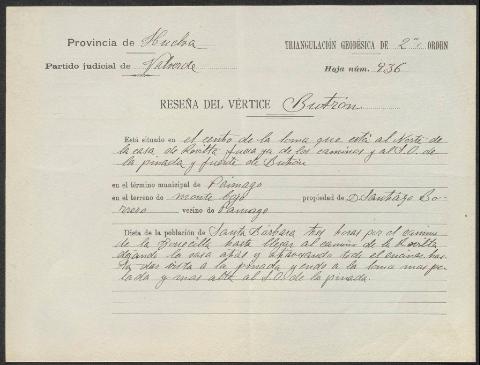 Provincia de Huelva
TRIANGULACIÓN GEODÉSICA DE 2º ORDEN
Partido judicial de Valverde
Hoja núm. 936
RESEÑA DEL VÉRTICE Butrón
Está situado en el centro de la loma que está al Norte de
la casa de Revilla fuera ya de los caminos y al S.O. de
la pinada y fuente de Butrón
en el término municipal de Paimogo
en el terreno de monte bajo propiedad de D. Santiago Bo-
rrero vecino de Paimogo
Dista de la población de Santa Bárbara tres horas por el camino
de la hasta llegar al camino de la Revilla
dejando la casa atrás y atravesando todo el encinar has-
ta dar vista a la pinada yendo a la loma mas pe-
lada y mas alta al S.O. de la pinada.